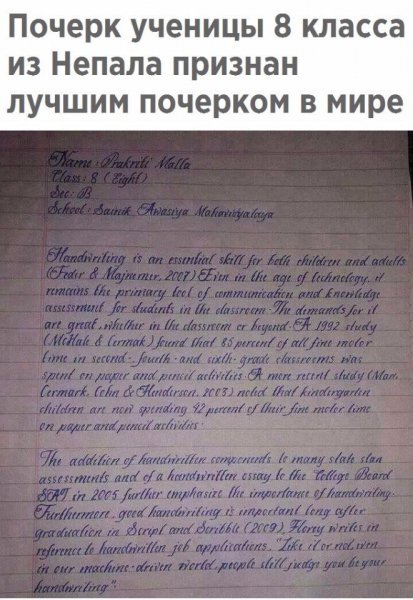 Почерк ученицы 8 класса
из Непала признан
лучшим почерком в мире
Name : Prakriti Malla
Class : 8 (Eight)
Sec : B
School : Sainik Awasiya Mahavidyalaya
Handwriting is an essential skill for both children and adults
(Feder & Majnemer, 2007) Even in the age of technology, it
remains the primary tool of communication and knowledge
assessment for students in the classroom. The demands for it
are great, whether in the classroom or beyond. A 1992 study
(McHale & Cermak) found that 85 percent of all fine motor
time in second-, fourth- and sixth- grade classrooms was
spent on paper and pencil activities. A more recent study (Marr,
Cermark, Cohn & Henderson, 2003) noted that kindergarten
children are now spending 42 percent of their fine motor time
on paper and pencil activities.
The addition of handwritten components to many state stan
assessments and of a handwritten essay to the College Board
SAT in 2005 further emphasize the importance of handwriting.
Furthermore, good handwriting is important long after
graduation in Script and Scribble (2009), Florey writes in
reference to handwritten job applications, "Like it or not, even
in our machine-driven world, people still judge you be your
handwriting".